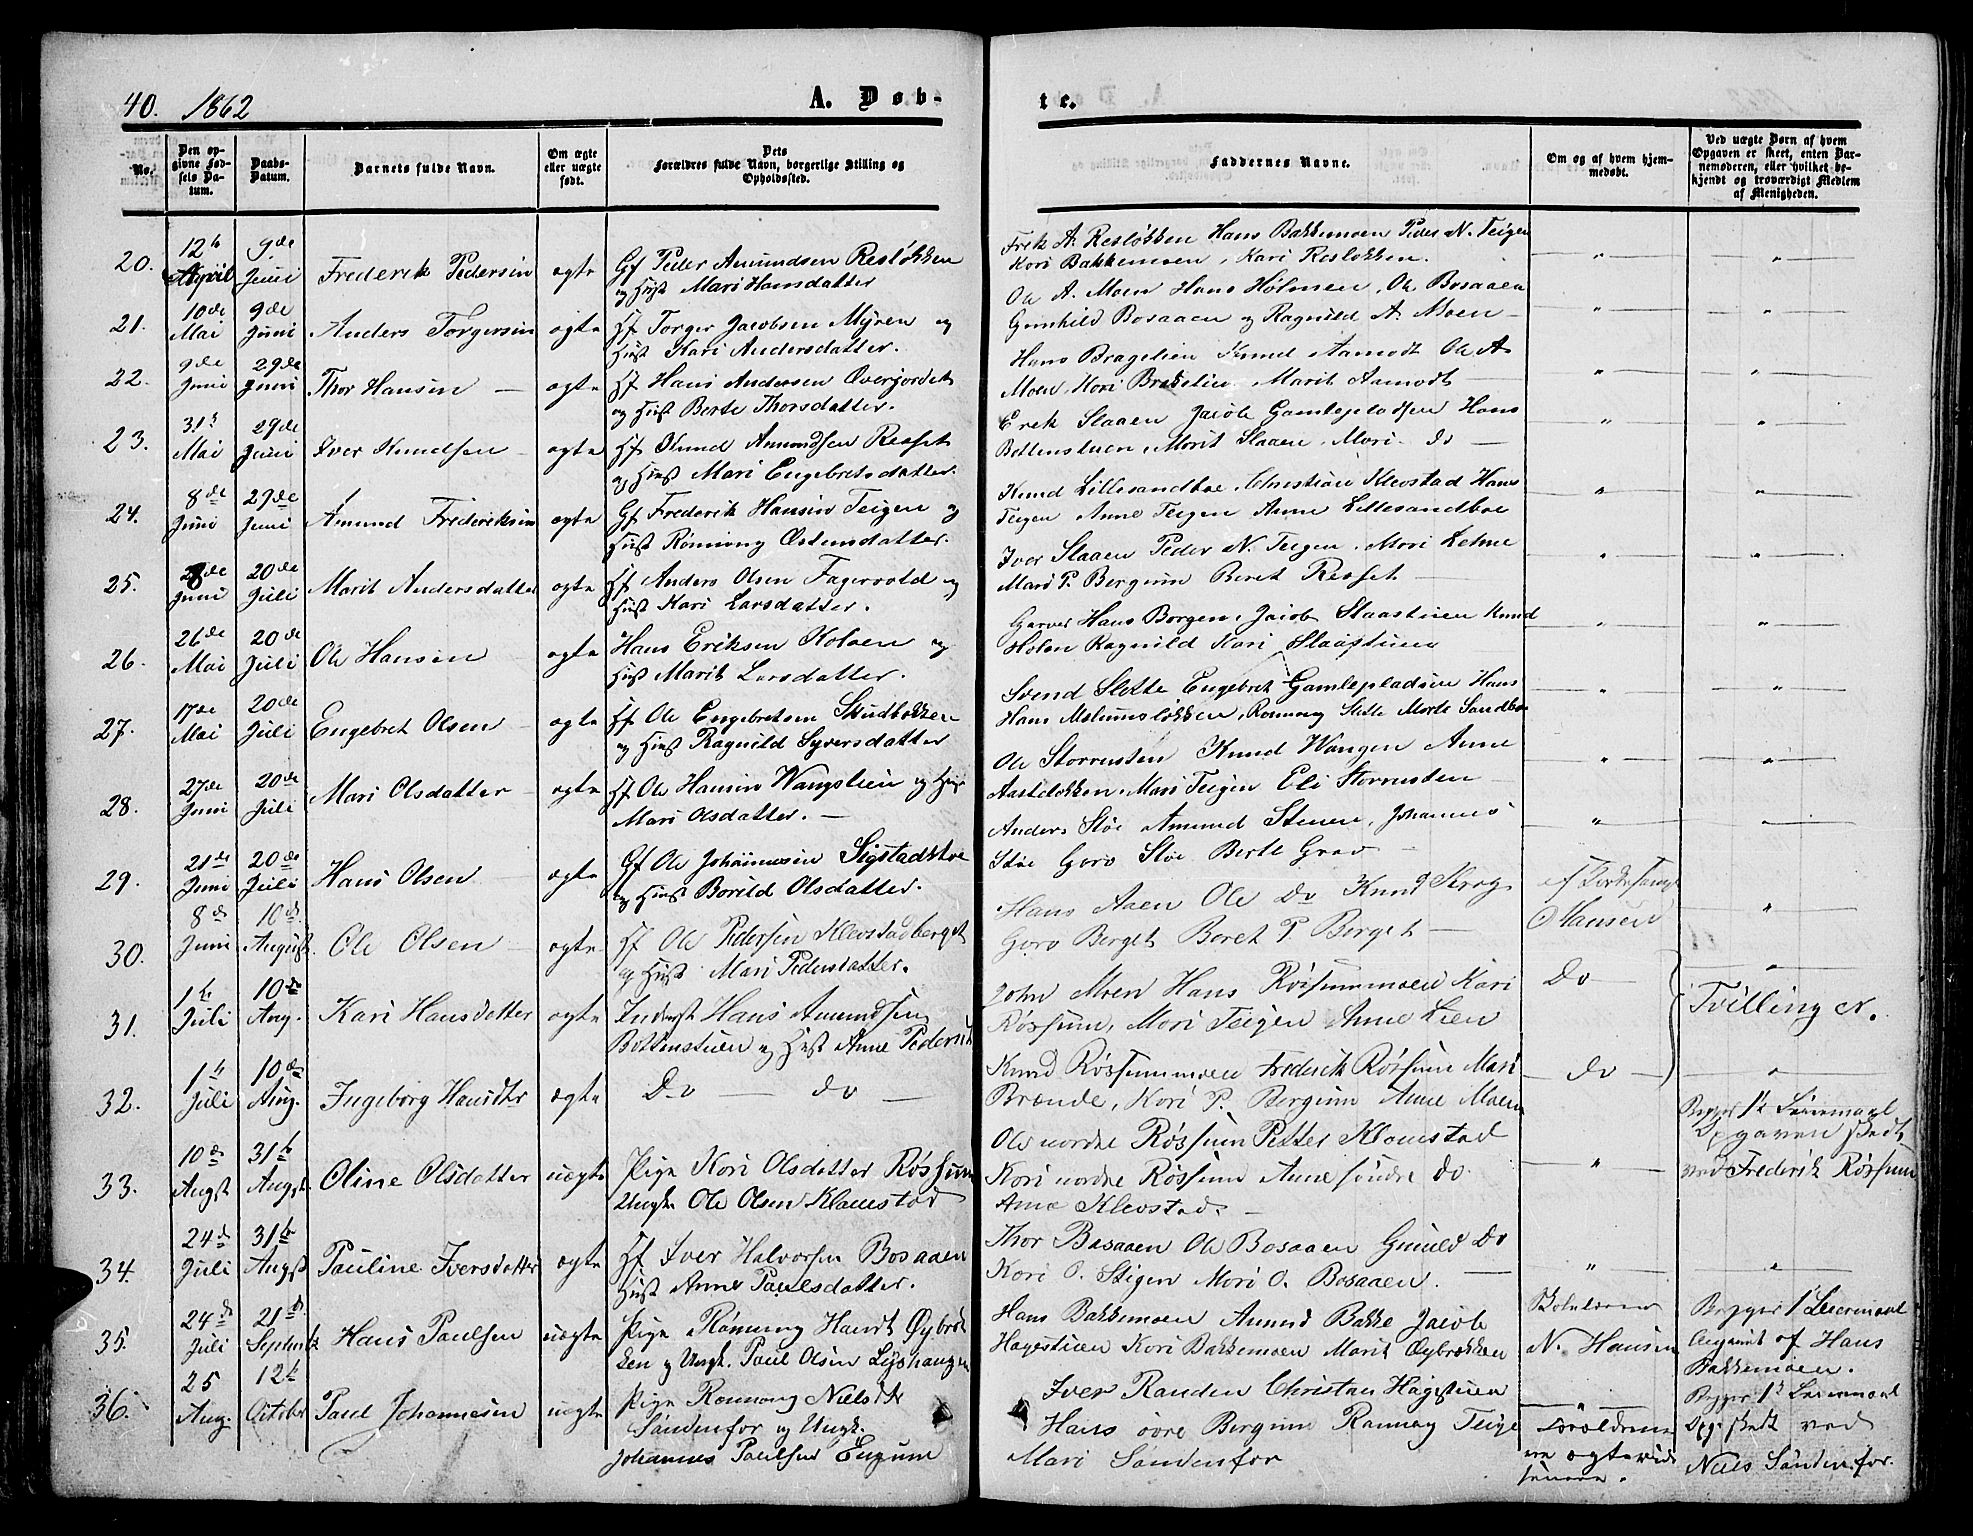 40. 1862
A. Døb-
te.
No.
Den op-
givne Fød-
sels Da-
tum.
Daabs-
Datum.
Barnets fulde Navn.
Om ægte
eller uægte
født.
Dets
Forældres fulde Navn, borgerlige Stilling og
Opholdssted.
Faddernes Navne.
Om og af hvem hjem-
medøbt.
Ved uægte Børn af hvem
Opgaven er skeet, enten Bar-
nemoderen, eller hvilket be-
kjendt og troværdigt Medlem
af Menigheden.
20. 12te April 9de Juni Frederik Pedersen ægte Gf Peder Amundsen Resløkken
og Hust Mari Hansdatter
Frek A. Resløkken Hans Bakkemoen Peder N. Teigen
Kari Bakkemoen, Kari Resløkken.
21. 10de Mai 9de Juni Anders Torgersen ægte Hf Torger Jacobsen Myren og
Hust Kari Andersdatter.
Ole A. Moen Hans Holmen, Ole Bosaaen
Gunhild Bosaaen og Ragnild A. Moen
22. 9de Juni 29de Juni Thor Hansen ægte Hf Hans Andersen Øverjordet
og Hust Berte Thorsdatter.
Hans Bragelien Knud Aamodt Ole A
Moen, Kari Bragelien Marit Aamodt
23. 31te Mai 29de Juni Iver Knudsen ægte Hf Knud Amundsen Resset
og Hust Mari Engebretsdatter.
Erek Slaaen Jacob Gamlepladsen Hans
Bottenstuen Marit Slaaen, Mari Do
24. 8de Juni 29de Juni Amund Frederiksen ægte Gf Frederik Hansen Teigen og
Hust Rønnong Østensdatter.
Knud Lillesandboe, Christian Klevstad Hans
Teigen Anne Teigen Anne Lillesandboe
25. 8de Juni 20de Juli Marit Andersdatter ægte Hf Anders Olsen Fagervold og
Hust Kari Larsdatter.
Iver Slaaen Peder N. Teigen, Mari Lehne
Mari P. Bergum Beret Resset
26. 26de Mai 20de Juli Ole Hansen ægte Hans Eriksen Kolaen og
Hust Marit Larsdatter.
Garver Hans Borgen, Jacob Slaastuen Knud
Holen Ragnild Kari Slaastuen
27. 17de Mai 20de Juli Engebret Olsen ægte Hf Ole Engebretsen Skudløkken
og Hust Ragnild Syversdatter
Svend Slette Engebret Gamlepladsen Hans
Hans Melumsløkken, Rønnong Slette Marte Sandboe
28. 27de Juni 20de Juli Mari Olsdatter ægte Hf Ole Hansen Wangslien og Hust
Mari Olsdatter.
Ole Storrusten Knud Wangen Anne
Aasteløkken, Mari Teigen Eli Storrusten
29. 21de Juni 20de Juli Hans Olsen ægte Gf Ole Johannesen Sigstadstøe
og Hust Borild Olsdatter.
Anders Støe Amund Stenen, Johannes
Støe Goro Støe Berte Grav
30. 8de Juni 10de August Ole Olsen ægte Hf Ole Pedersen Klevstadberget
og Hust Mari Pedersdatter.
Hans Aaen Ole Do Knud Skrog
Goro Berget Beret P Berget
af Kirkesanger
O Hansen
31. 1te Juli 10de Aug. Kari Hansdatter ægte Inderst Hans Amundsen
Bottenstuen og Hust Anne Pedersd
John Moen Hans Røssummoen Kari
Røssum, Mari Teigen Anne Lien
Do
Tvilling N.
32. 1te Juli 10de Aug. Ingeborg Hansdtr ægte Do Do
Knud Røssummoen Frederik Røssum Mari
Brænde, Kari P. Bergum Anne Moen
Do
33. 10de Augst 31te Augst Oline Olsdatter uægte Pige Kari Olsdatter Røssum
Ungk. Ole Olsen Klomstad
Ole nordre Røssum Petter Klomstad
Kari nordre Røssum Anne søndre Do
Ane Klevstad.
Begges 1te Leiermaal
Opgaven skedt
ved Frederik Røssum
34. 24de Juli 31te Augst Pauline Iversdatter ægte Hf Iver Halvorsen Bosaaen
Hust Anne Paulsdatter.
Thor Bosaaen Ole Bosaaen Gunild Do
Kari O. Stigen Mari O. Bosaaen.
35. 24de Juli 21de Septembr Hans Paulsen uægte Pige Rønnong Hansdt Øybræk
ken og Ungk. Paul Olsen Lyshaugen
Hans Bakkemoen Amund Bakke Jacob
Hagestuen Kari Bakkemoen Marit Øybrækken
Skolelærer
N. Hansen
Begges 1te Leiermaal
Angivet af Hans
Bakkemoen.
36. 25 Aug. 12te October Paul Johannesen uægte Pige Rønnong Nielsdtr
Søndenfor og Ungk.
Johannes Paulsen Engum
Iver Randen Christian Hagestuen
Hans øvre Bergum Rønnog Teige
Mari Søndenfor
Forældrene
ere ægteviede
senere.
Begges 1te Leiermaal
Opg. skedt ved
Niels Søndenfor.